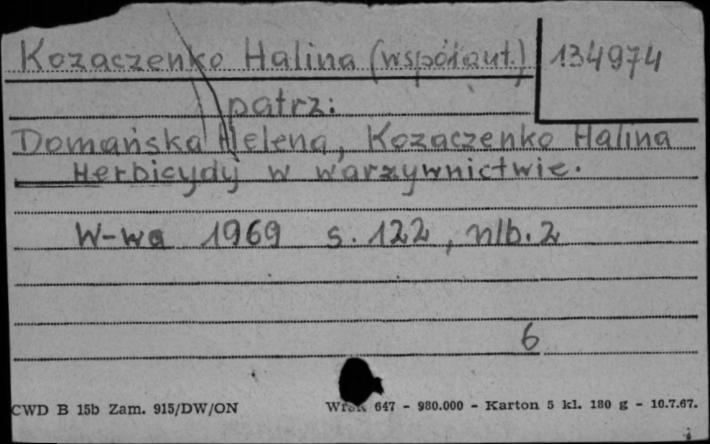 Kozaczenko Halina (współaut.) 134974
patrz:
Domańska Helena, Kozaczenko Halina
Herbicydy w warzywnictwie.
W-wa 1969 s. 122, nlb. 2
6
CWD B 15b Zam. 915/DW/ON 647 - 980.000 - Karton 5 kl. 180 g - 10.7.67.